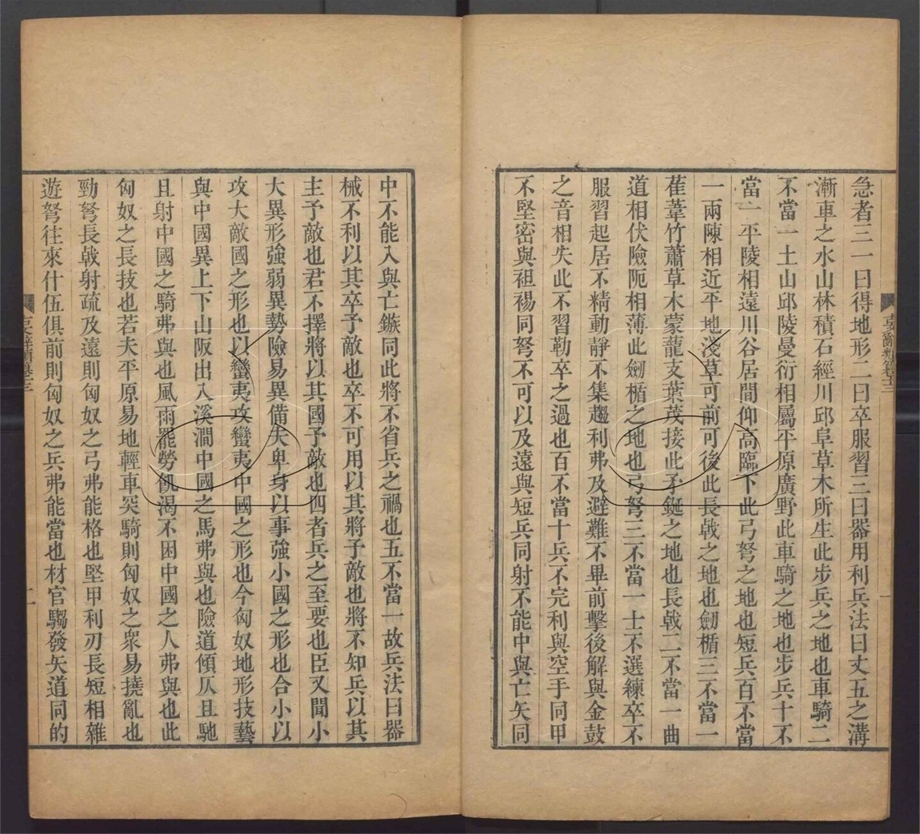 急者三一曰得地形二曰卒服習三曰器用利兵法曰丈五之溝
漸車之水山林積石經川邱阜草木所生此步兵之地也車騎二
不當一土山邱陵曼衍相屬平原廣野此車騎之地也步兵十不
當一平陵相遠川谷居間仰高臨下此弓弩之地也短兵百不當
一兩陳相近平地淺草可前可後此長戟之地也劒楯三不當一
萑葦竹蕭草木蒙蘢支葉茂接此矛鋋之地也長戟二不當一曲
道相伏險阨相薄此劒楯之地也弓弩三不當一士不選練卒不
服習起居不精動靜不集趨利弗及避難不畢前擊後解與金鼓
之音相失此不習勒卒之過也百不當十兵不完利與空手同甲
不堅密與袒裼同弩不可以及遠與短兵同射不能中與亡矢同
中不能入與亡鏃同此將不省兵之禍也五不當一故兵法曰器
械不利以其卒予敵也卒不可用以其將予敵也將不知兵以其
主予敵也君不擇將以其國予敵也四者兵之至要也臣又聞小
大異形強弱異勢險易異備夫卑身以事強小國之形也合小以
攻大敵國之形也以蠻夷攻蠻夷中國之形也今匈奴地形技藝
與中國異上下山阪出入溪澗中國之馬弗與也險道傾仄且馳
且射中國之騎弗與也風雨罷勞飢渴不困中國之人弗與也此
匈奴之長技也若夫平原易地輕車突騎則匈奴之衆易撓亂也
勁弩長戟射疏及遠則匈奴之弓弗能格也堅甲利刃長短相雜
遊弩往來什伍俱前則匈奴之兵弗能當也材官騶發矢道同的
二